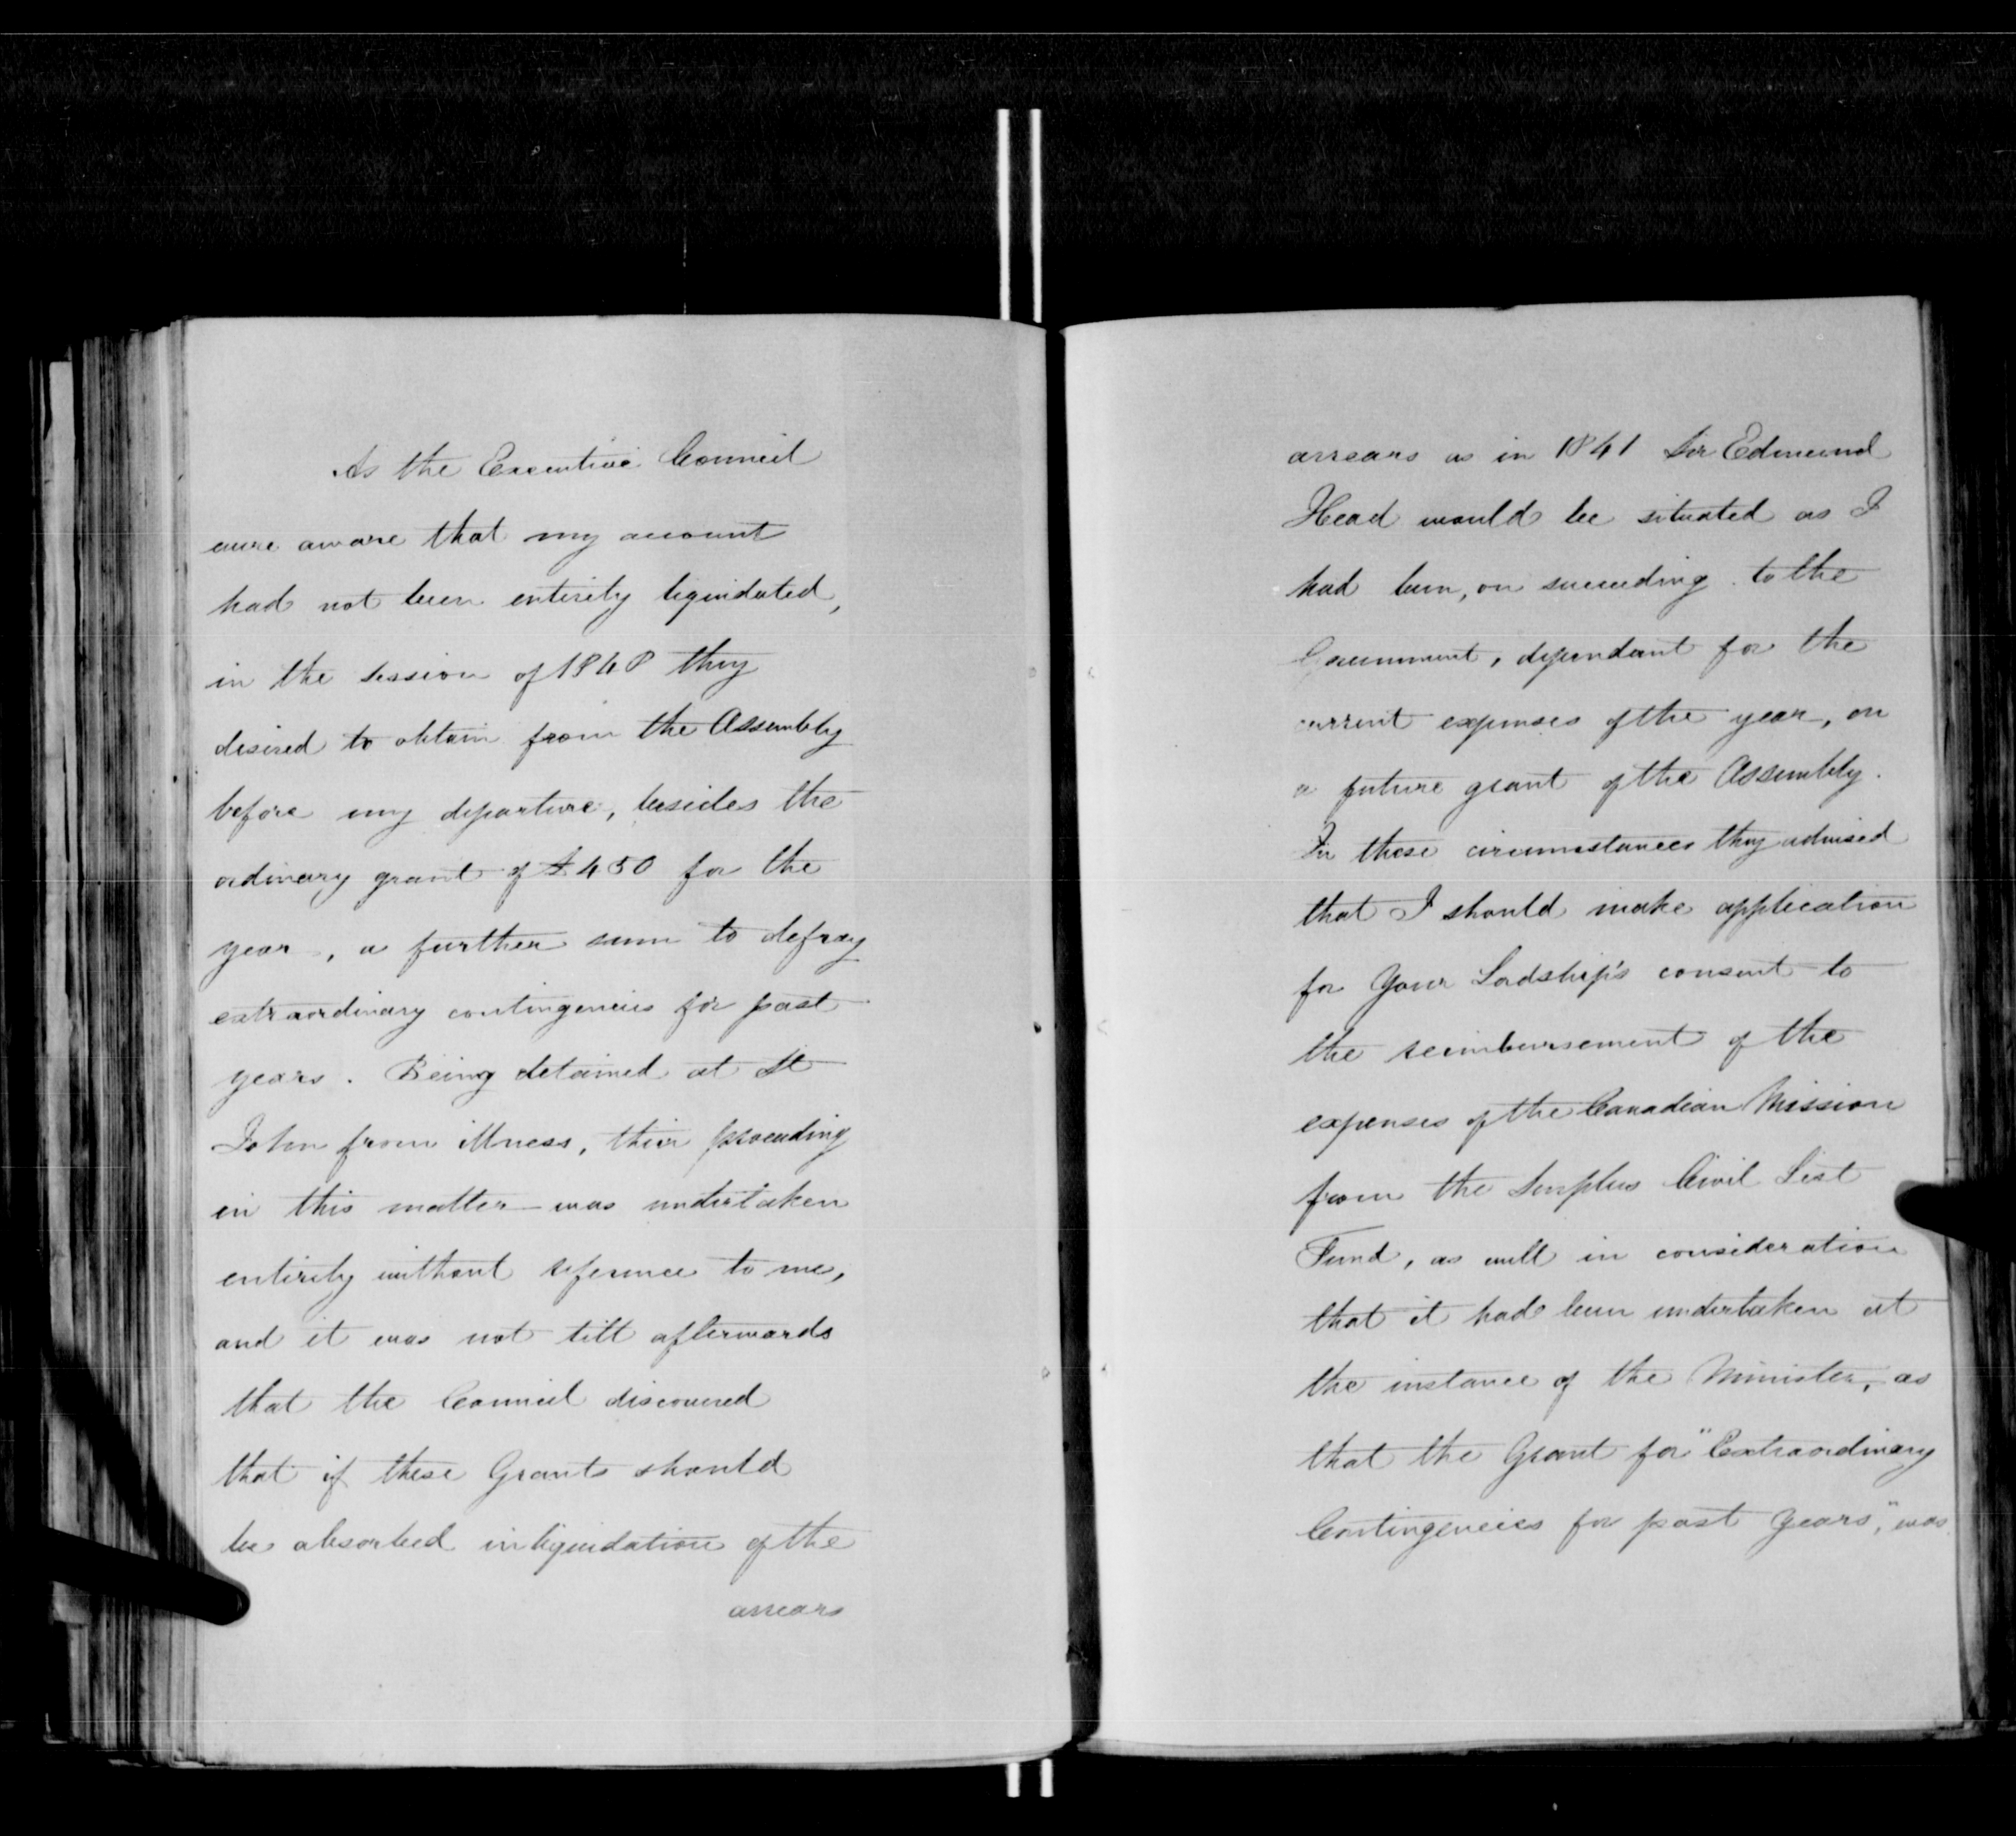 As the Executive Council
were aware that my account
had not been entirely liquidated,
in the session of 1848 they
desired to obtain from the Assembly
before my departure, besides the
ordinary grant of £450 for the
year, a further sum to defray
extraordinary contingencies for past
years. Being detained at St
John from illness, their proceeding
in this matter was undertaken
entirely without reference to me,
and it was not till afterwards
that the Council discovered
that if these Grants should
be absorbed in liquidation of the
arrears
arrears as in 1841 Sir Edmund
Head would be situated as I
had been, on succeeding to the
Government, dependant for the
current expenses of the year, on
a future grant of the Assembly.
In these circumstances they advised
that I should make application
for Your Lordship's consent to
the reimbursement of the
expenses of the Canadian Mission
from the Surplus Civil List
Fund, as well in consideration
that it had been undertaken at
the instance of the Minister, as
that the Grant for "Extraordinary
Contingencies for past Years," was